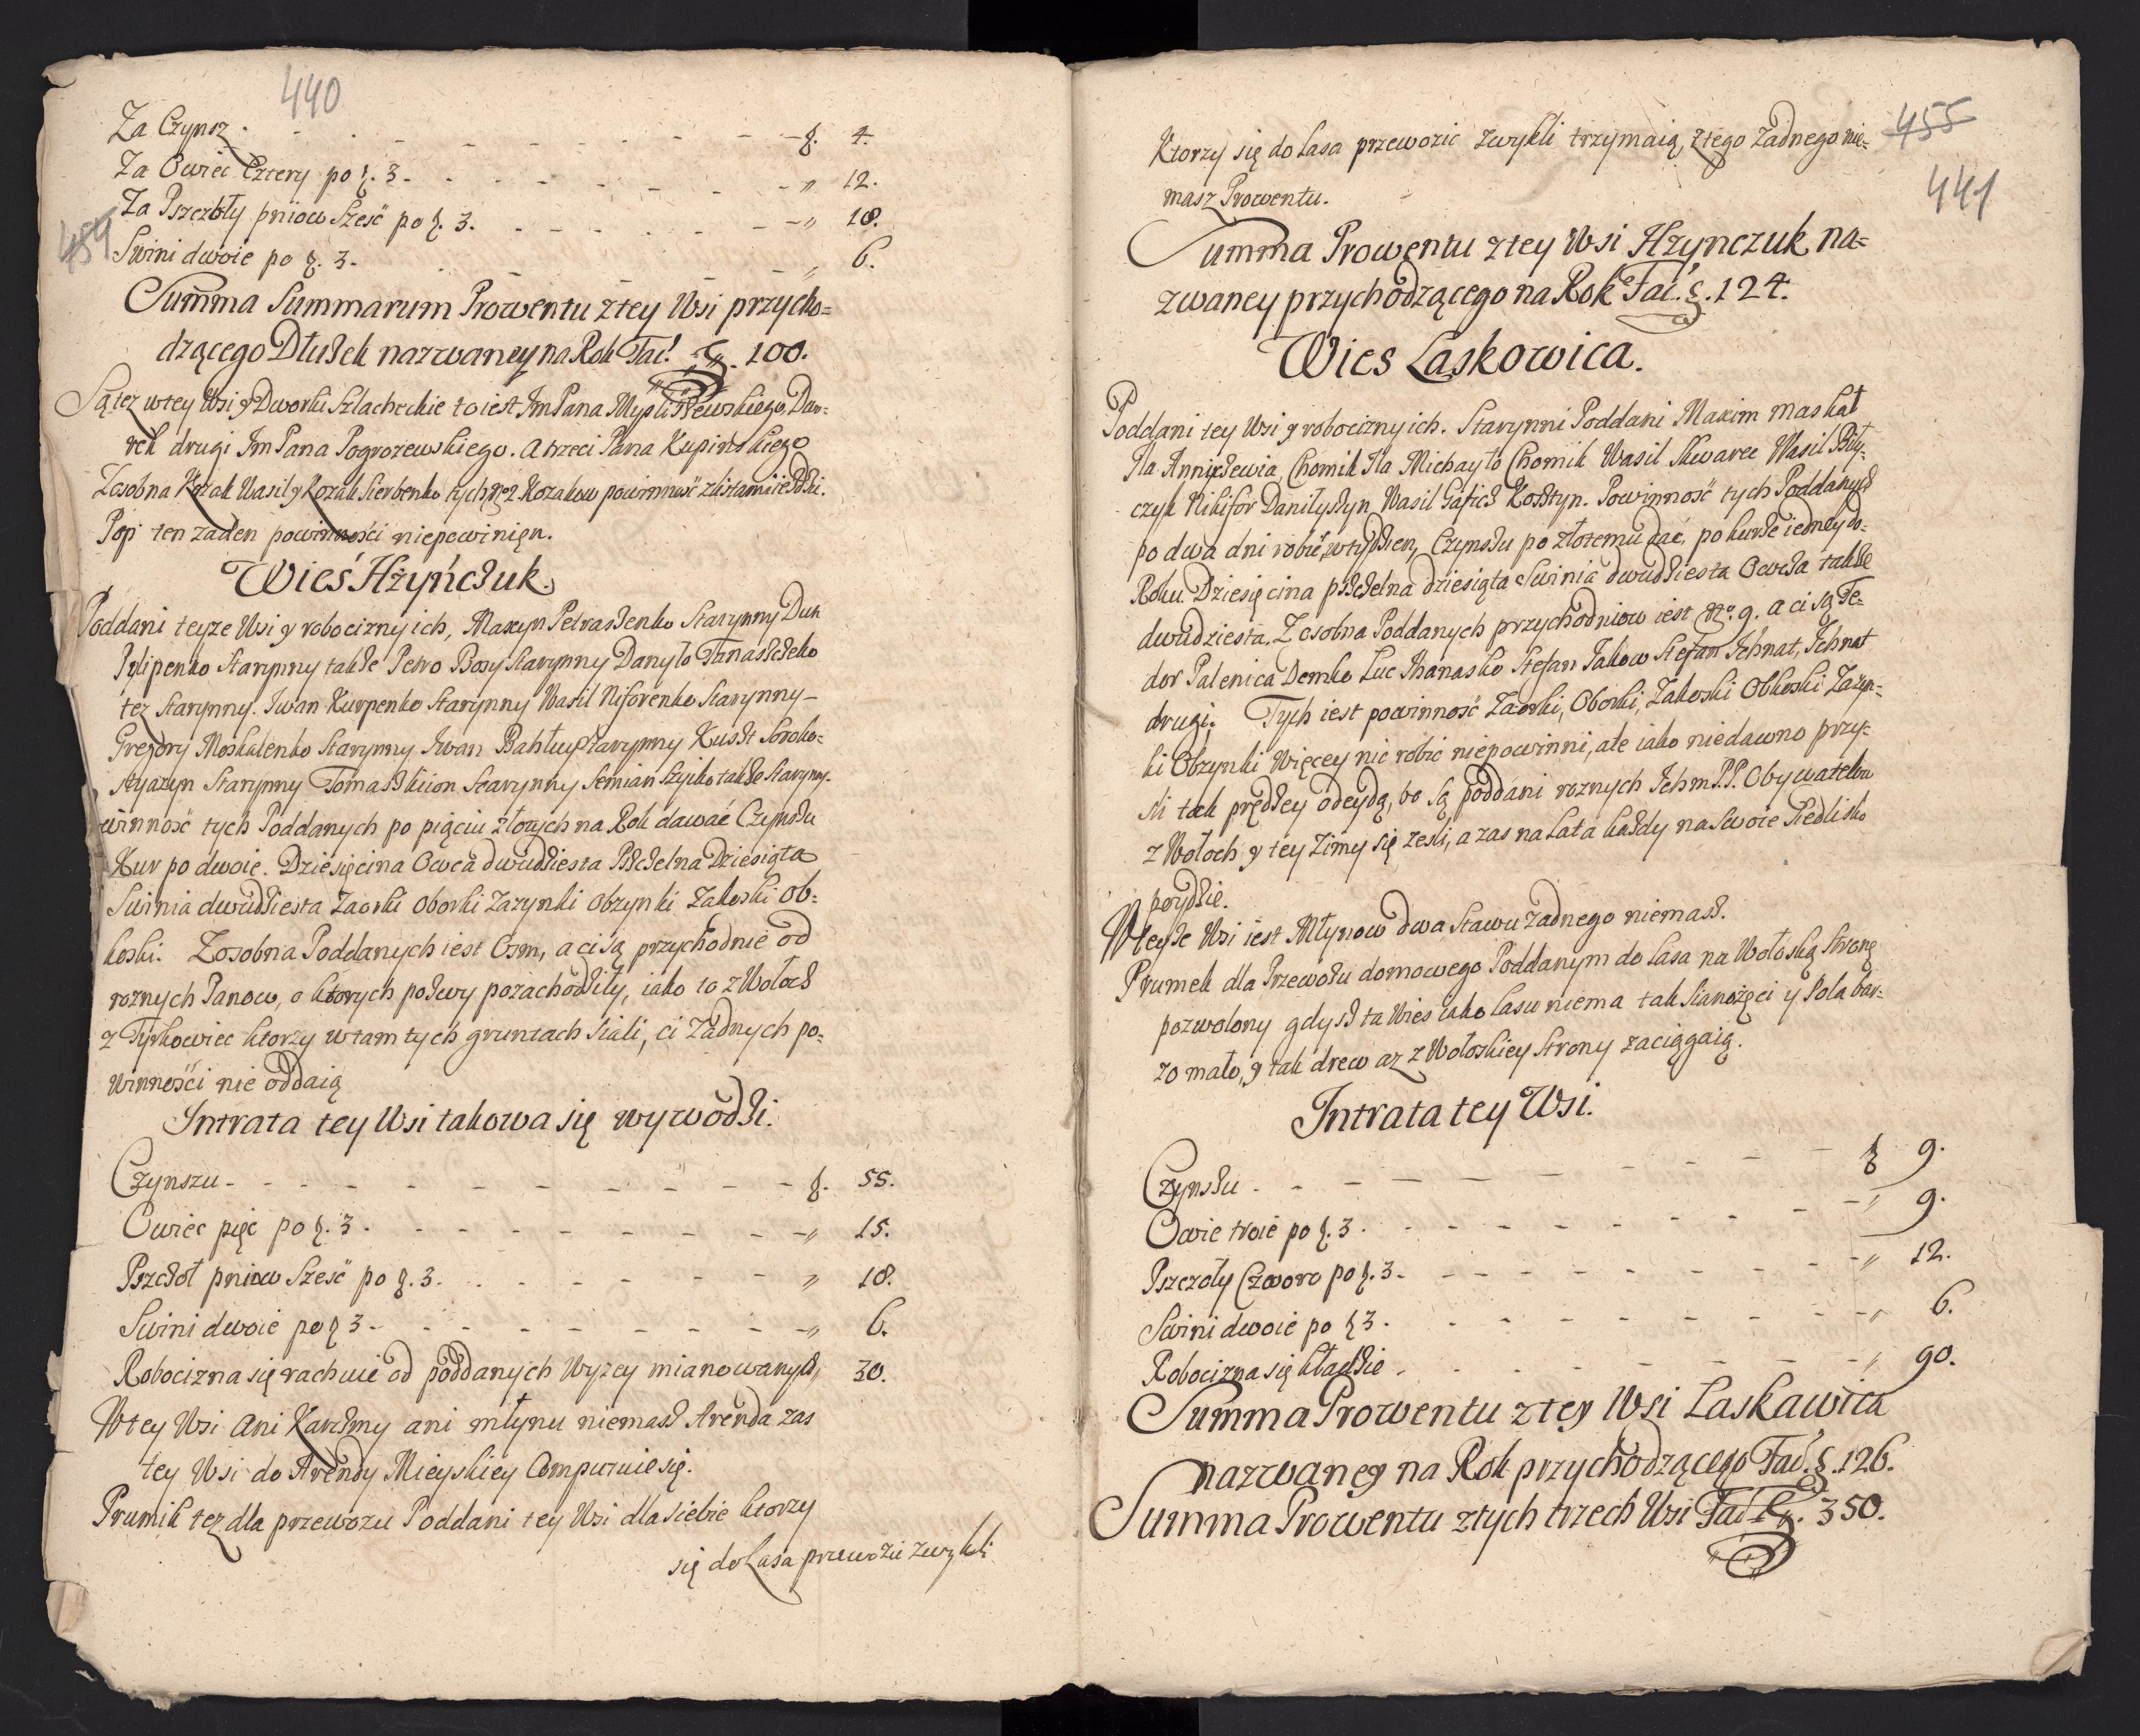 440
Za Czynsz . - - - - - - - ƶ. 4.
Za Owiec Cztery po ƶ. 3. - - - - - - „ 12.
Za Pszczoły pniow Sześć po ƶ. 3. - - - - - „ 18.
454
Swini dwoie po ƶ. 3. - - - - - „ 6.
Summa Summarum Prowentu z tey Wsi przycho=
dzącego Dłużek nazwaney na Rok Fać. ƶ. 100.
Są tez w tey Wsi y Dworki Szlacheckie to iest Im Pana Dwo=
rek drugi Im Pana Pogrozewskiego. a trzeci Pana Kupinskiego
Zosobna Kozak Wasil y Kozak Sierbenko tych No 2 Kozakow powinność z listami ieździć.
Pop ten zaden powinności niepowinięn.
Wieś Hżyńczuk.
Poddani teyze Wsi y robocizny ich, Maxyn Petraszenko Starynny Duk
Pylipenko Starynny takze Petro Bosy Starynny Danyło Tanaszczeko
tez Starynny. Iwan Kurpenko Starynny Wasil Niforenko Starynny -
Gregory Moskalenko Starynny Iwan Bahłuy Starynny Kuszt Soroko=
Starynny Starynny Semian Szyiko takze Starynny.
winność tych Poddanych po pięciu złotych na Rok dawać Czynszu
Kur po dwoie. Dziesięcina Owca dwudziesta Pszczelna Dziesiąta
Swinia dwudziesta Zaorki Oborki Zazynki Obzynki Zakoski Ob=
koski. Zosobna Poddanych iest Osm, a ci są przychodnie od
roznych Panow, o ktorych pozwy pozachodziły, iako to z Wołoch
z Tyrkowiec ktorzy w tamtych gruntach Siali, ci Żadnych po=
winności nie oddaią
Intrata tey Wsi takowa się wywodzi.
Czynszu - - - - - - - - - - ƶ. 55.
Owiec pięć po ƶ. 3. - - - - - - - „ 15.
Pszczoł pniow Sześć po ƶ. 3. - - - - - „ 18.
Swini dwoie po ƶ 3 - - - - - - - - „ 6.
Robocizna się rachuie od poddanych Wyzey mianowanych, 30.
W tey Wsi Ani Karczmy ani młynu niemasz Arenda zas
tey Wsi do Arendy Mieyskiey Computuie się.
Prumik tez dla przewozu Poddani tey Wsi dla siebie ktorzy
się do Lasa przewozic zwykli
455
Ktorzy się do Lasa przewozic zwykli trzymaią, z tego Żadnego nie=
441
masz Prowentu.
Summa Prowentu z tey Wsi Hżynczuk na=
zwaney przychodzącego na Rok Fać. ƶ. 124.
Wies Laskowica.
Poddani tey Wsi y robocizny ich. Starynni Poddani Maxim maskał
Ila Chomik Ila Michayło Chomik Wasil Skwarec Wasil Biły=
czyk Nikifor Daniłyszyn Wasil Gafich Kosztyn. Powinność tych Poddanych
po dwa dni robić w tydzien, Czynszu po złotemu dać, po kurze iedney do=
Roku. Dziesięcina pszczelna dziesiąta Swinia dwudziesta Owcza takze
dwudziesta. Z osobna Poddanych przychodniow iest No. 9. a ci są Fe=
dor Palenica Demko Luc Ihanasko Stefan Jakow Stefan Ichnat, Ichnat
drugi. Tych iest powinność Zaorki, Oborki, Zakoski Obkoski Zazyn=
ki Obzynki Więcey nic robic niepowinni, ale iako niedawno przy=
śli tak prędzey odeydą, bo są poddani roznych Ichm P.P. Obywatelow
z Wołoch y tey Zimy się zeszli, a zas na Lata kazdy na swoie Siedlisko
poydzie.
W teyze Wsi iest Młynow dwa Stawu zadnego niemasz.
Prumek dla Przewozu domowego Poddanym do Lasa na Wołoską Stronę
pozwolony gdysz ta Wies iako lasu niema tak Sianozęci y Pola bar=
zo mało, y tak drew az z Wołoskiey Strony zaciągaią.
Intrata tey Wsi.
Czynszu - - - - - - - - - ƶ 9.
Owie troie po ƶ. 3. - - - - - - - - „ 9.
Pszczoły Czworo po ƶ. 3. - - - - - - - „ 12.
Swini dwoie po ƶ 3. - - - - - - - „ 6.
Robocizna się kładzie . - - - - - - „ 90.
Summa Prowentu z tey Wsi Laskawica
nazwaney na Rok przychodzącego Fać. ƶ. 126.
Summa Prowentu z tych trzech Wsi Fać ƶ. 350.